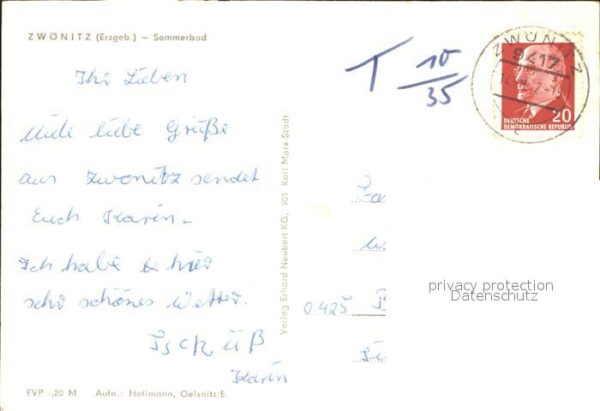 ZWÖNITZ (Erzgeb.) – Sommerbad
Ihr Lieben
viele liebe Grüße
aus Zwönitz sendet
Euch Karin.
Ich habe hier
sehr schönes Wetter.
Tschüß
Karin
EVP -,20 M Aufn.: Hoffmann, Oelsnitz/E.
Verlag Erhard Neubert KG, 901 Karl-Marx-Stadt
T 10/35
ZWÖNITZ
9417
20
DEUTSCHE
DEMOKRATISCHE REPUBLIK
0425
privacy protection
Datenschutz